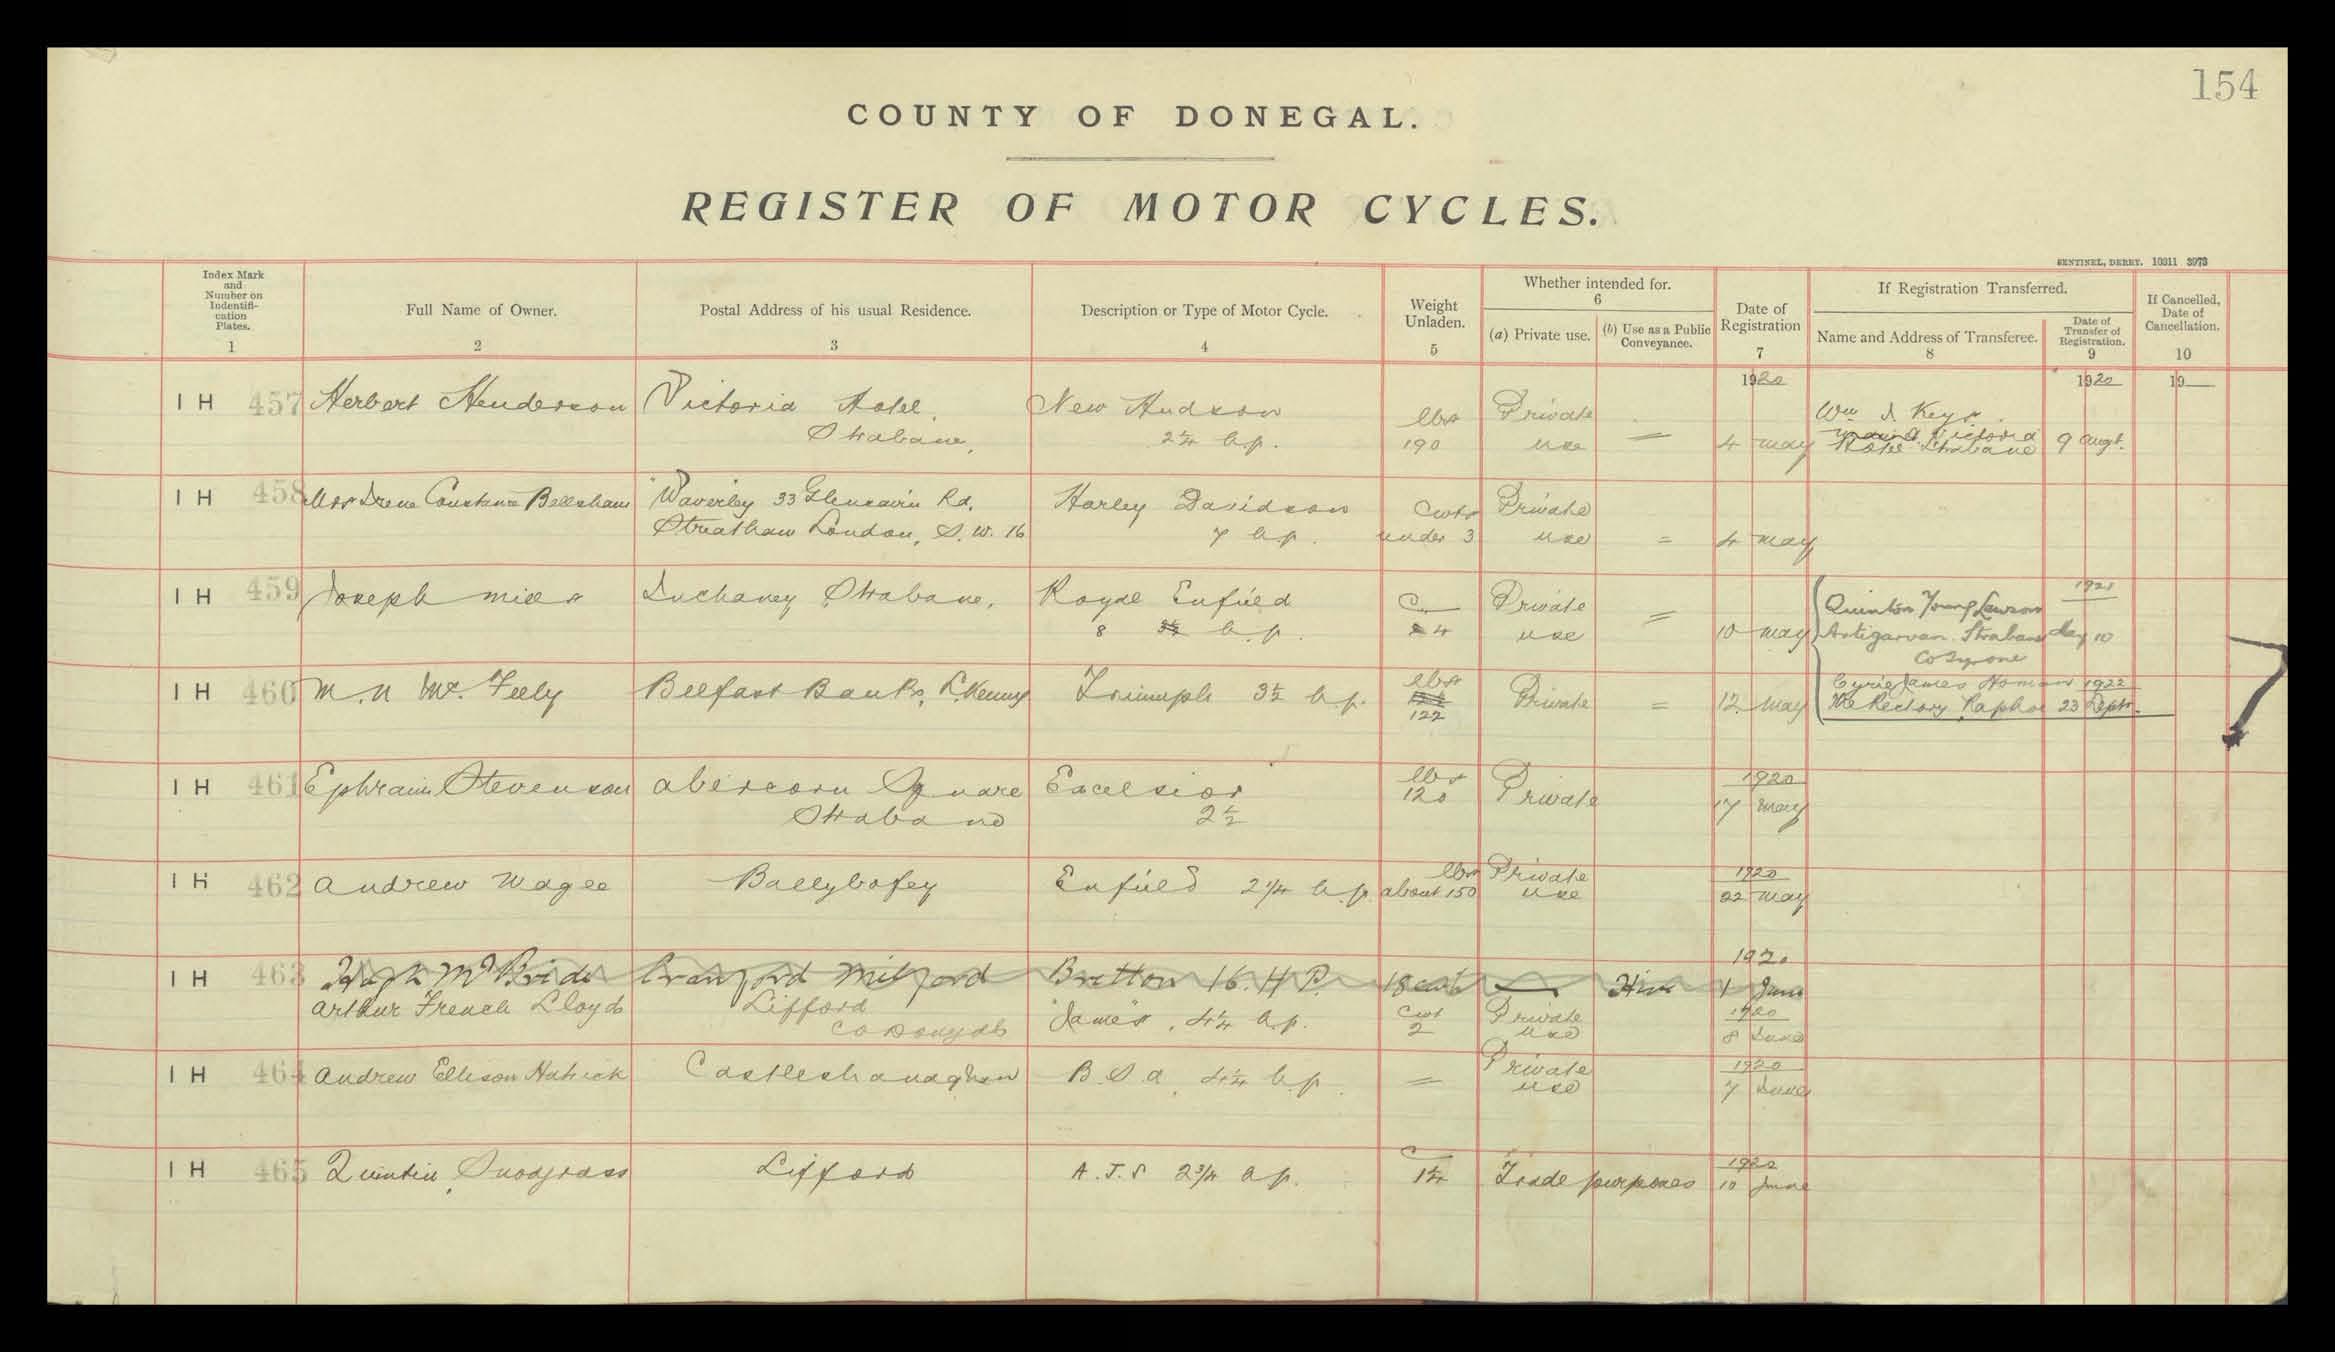 154
COUNTY OF DONEGAL.
REGISTER OF MOTOR CYCLES.
SENTINEL, DERRY. 10311 3973
Index Mark
and
Number on
Indentifi-
cation
Plates.
1
Full Name of Owner.
2
Postal Address of his usual Residence.
3
Description or Type of Motor Cycle.
4
Weight
Unladen.
5
Whether intended for.
6
(a) Private use.
(b) Use as a Public
Conveyance.
Date of
Registration
7
If Registration Transferred.
Name and Address of Transferee.
8
Date of
Transfer of
Registration.
9
If Cancelled,
Date of
Cancellation.
10
1920 1920 19
I H 457 Herbert Henderson Victoria Hotel, New Hudson lbs Private Wm J Keys
Strabane, 2¼ h.p. 190 use = 4 May Victoria
Hotel Strabane 9 Augt.
I H 458 Mrs Irene Constance Bellsham Waverley 33 Glencairn Rd, Harley Davidson Cwts Private
Streatham London, S.W. 16 7 h.p. under 3 use = 4 May
I H 459 Joseph Mills Luchaney Strabane. Royal Enfield C Private = Quinton Young Lawson 1921
8 3½ h.p. 4 use 10 May Artigarvan Strabane May 10
Co Tyrone
I H 460 M. N McFeely Belfast Bank, L'Kenny Triumph 3½ h.p. lbs
122 Private = 12 May Cyril James Homan 1922
The Rectory Raphoe 23 Sept.
I H 461 Ephraim Stevenson Abercorn Square Excelsior lbs
120 Private 1920
Strabane 2½ 17 May
I H 462 Andrew Magee Ballybofey Enfield 2¼ h.p. lbs
about 150 Private
use 1920
22 May
I H 463 Hugh McBride Cranford Milford Britton 16. H.P. 18 cwt — Hire 1920
1 June
Arthur French Lloyd Lifford
Co Donegal "James", 4¼ h.p. Cwt
2 Private
use 1920
8 June
I H 464 Andrew Ellison Hatrick Castleshanaghan B.S.A 4¼ h.p. = Private
use 1920
7 June
I H 465 Quintin Snodgrass Lifford A.J.S 2¾ h.p. C
1¼ Trade purposes 1920
10 June